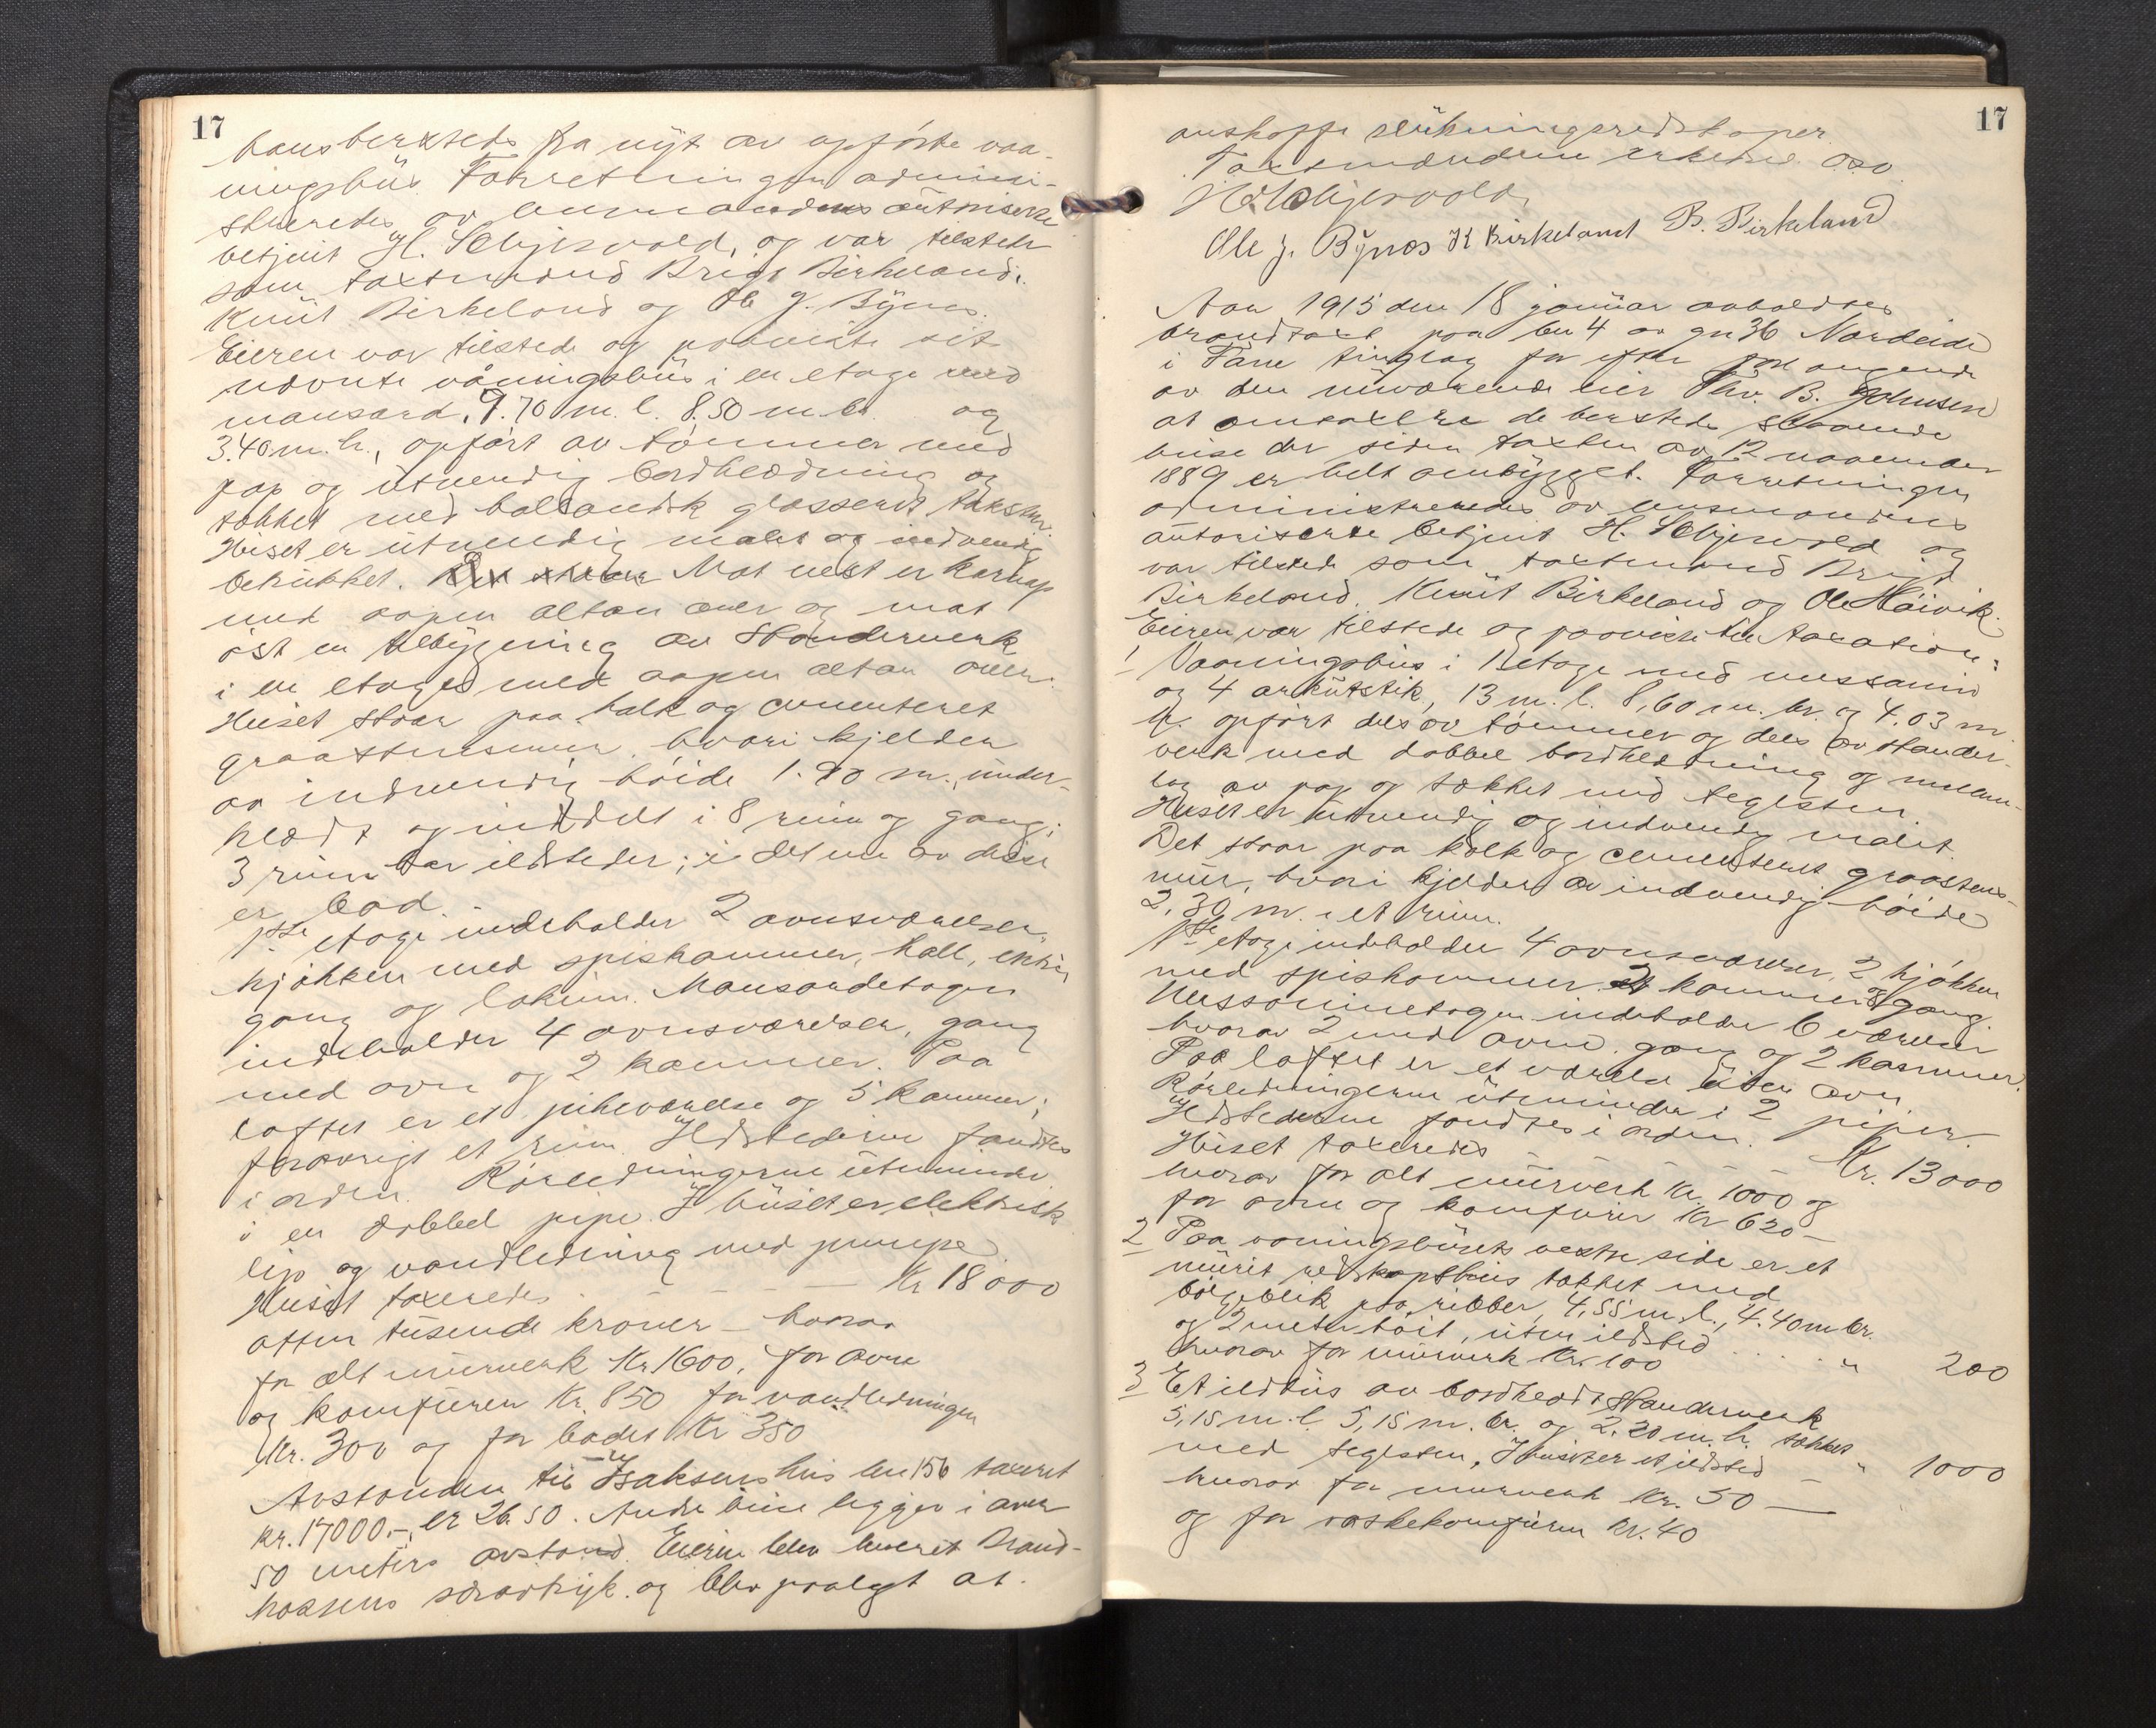 17
hans bersteds fra nyt av opförte vaa-
ningshus. Forretningen admini-
streredes av lensmandens autoriserte
betjent H. Schjersvold, og var tilstede
som taxtmænd Brigt Birkeland,
Knut Birkeland og Ole J. Bynes.
Eieren var tilstede og paaviste sit
nævnte våningshus i en etage med
mansard, 9.70 m. l. 8.50 m. br. og
3.40 m. h., opfört av tömmer med
pap og utvendig bordklædning og
tækket med hollandsk glasseret taksten.
Huset er utvendig malet og indvendig
Mot vest er karnap
med aapen altan over og mot
öst en tilbygning av Standerverk
i en etage med aapen altan over.
Huset staar paa kalk og cementeret
graastensmur, hvori kjelder
av indvendig höide 1.90 m., under-
klædt og inddelt i 8 rum og gang;
3 rum har ildsteder; i det ene av disse
er bad.
1ste etage indeholder 2 ovnsværelser,
kjökken med spiskammer, hall, entre
gang og lokrum. Mansardetagen
indeholder 4 ovnsværelser, gang
med ovn og 2 kammer. Paa
loftet er et pikeværelse og 5 kammer;
forövrigt et rum. Ildstederne fandtes
i orden. Rörledningerne utmunder
i en dobbel pipe. I huset er elektrisk
lys og vandledning med pumpe
Huset taxeredes — — — Kr 18000
atten tusende kroner — hvorav
for alt murverk Kr. 1600, for ovne
og komfuren Kr. 850 for vandledningen
Kr. 300 og for badet Kr 350
Avstanden til Isaksens hus bn 156 taxeret
kr. 17000.-, er 26.50. Andre huse ligger i over
50 meters avstand. Eieren blev leveret Brand-
kassens særavtryk og blev paalagt at
17
anskaffe slukningsredskaper.
Taxtmændene erkjendte o.s.v.
H. Schjersvold,
Ole J. Bynes K Birkeland B. Birkeland
Aar 1915 den 18 januar avholdtes
brandtaxt paa bn 4 av gn 36 Nordeide
i Fane tinglag for efter forlangende
av den nuværende eier Thv. B. Johnsen
at omtaxere de bersteds staaende
huse der siden taxten av 12 november
1889 er helt ombygget. Forretningen
administreredes av lensmandens
autoriserte betjent H. Schjersvold og
var tilstede som taxtmænd Brigt
Birkeland, Knut Birkeland og Ole Höivik.
Eieren var tilstede og paaviste til taxation:
1 Vaaningshus i 1 etage med messanin
og 4 arkutstik, 13 m. l. 8,60 m. br. og 4.03 m.
h. opfört dels av tömmer og dels av stander-
verk med dobbel bordklædning og mellem-
lag av pap og tækket med teglsten.
Huset er utvendig og indvendig malet.
Det staar paa kalk og cementeret graastens-
mur, hvori kjelder av indvendig höide
2.30 m. i et rum.
1ste etage indeholder 4 ovnsværelser, 2 kjökken
med spiskammer, kammer og gang.
Messaninetagen indeholder 6 værelser
hvorav 2 med ovne, gang og 2 kammer.
Paa loftet er et værelse uten ovn.
Rörledningerne utmunder i 2 piper.
Ildstederne fandtes i orden.
Huset taxeredes — — — Kr. 13000
hvorav for alt murverk Kr. 1000 og
for ovne og komfurer Kr 620 —
2 Paa vaningshusets vestre side er et
muret redskapshus tækket med
bölgeblik paa ribber, 4,55 m. l., 4.40 m br.
og 2 meter höit, uten ildsted . . . . " 200
hvorav for murverk Kr. 100
3 Et ildhus av bordklædt Standerverk
5,15 m. l. 5,15 m. br. og 2.20 m. h. tækket
med teglsten, I huset er et ildsted — " 1000
hvorav for murverk Kr. 50 —
og for vaskekomfuren Kr. 40